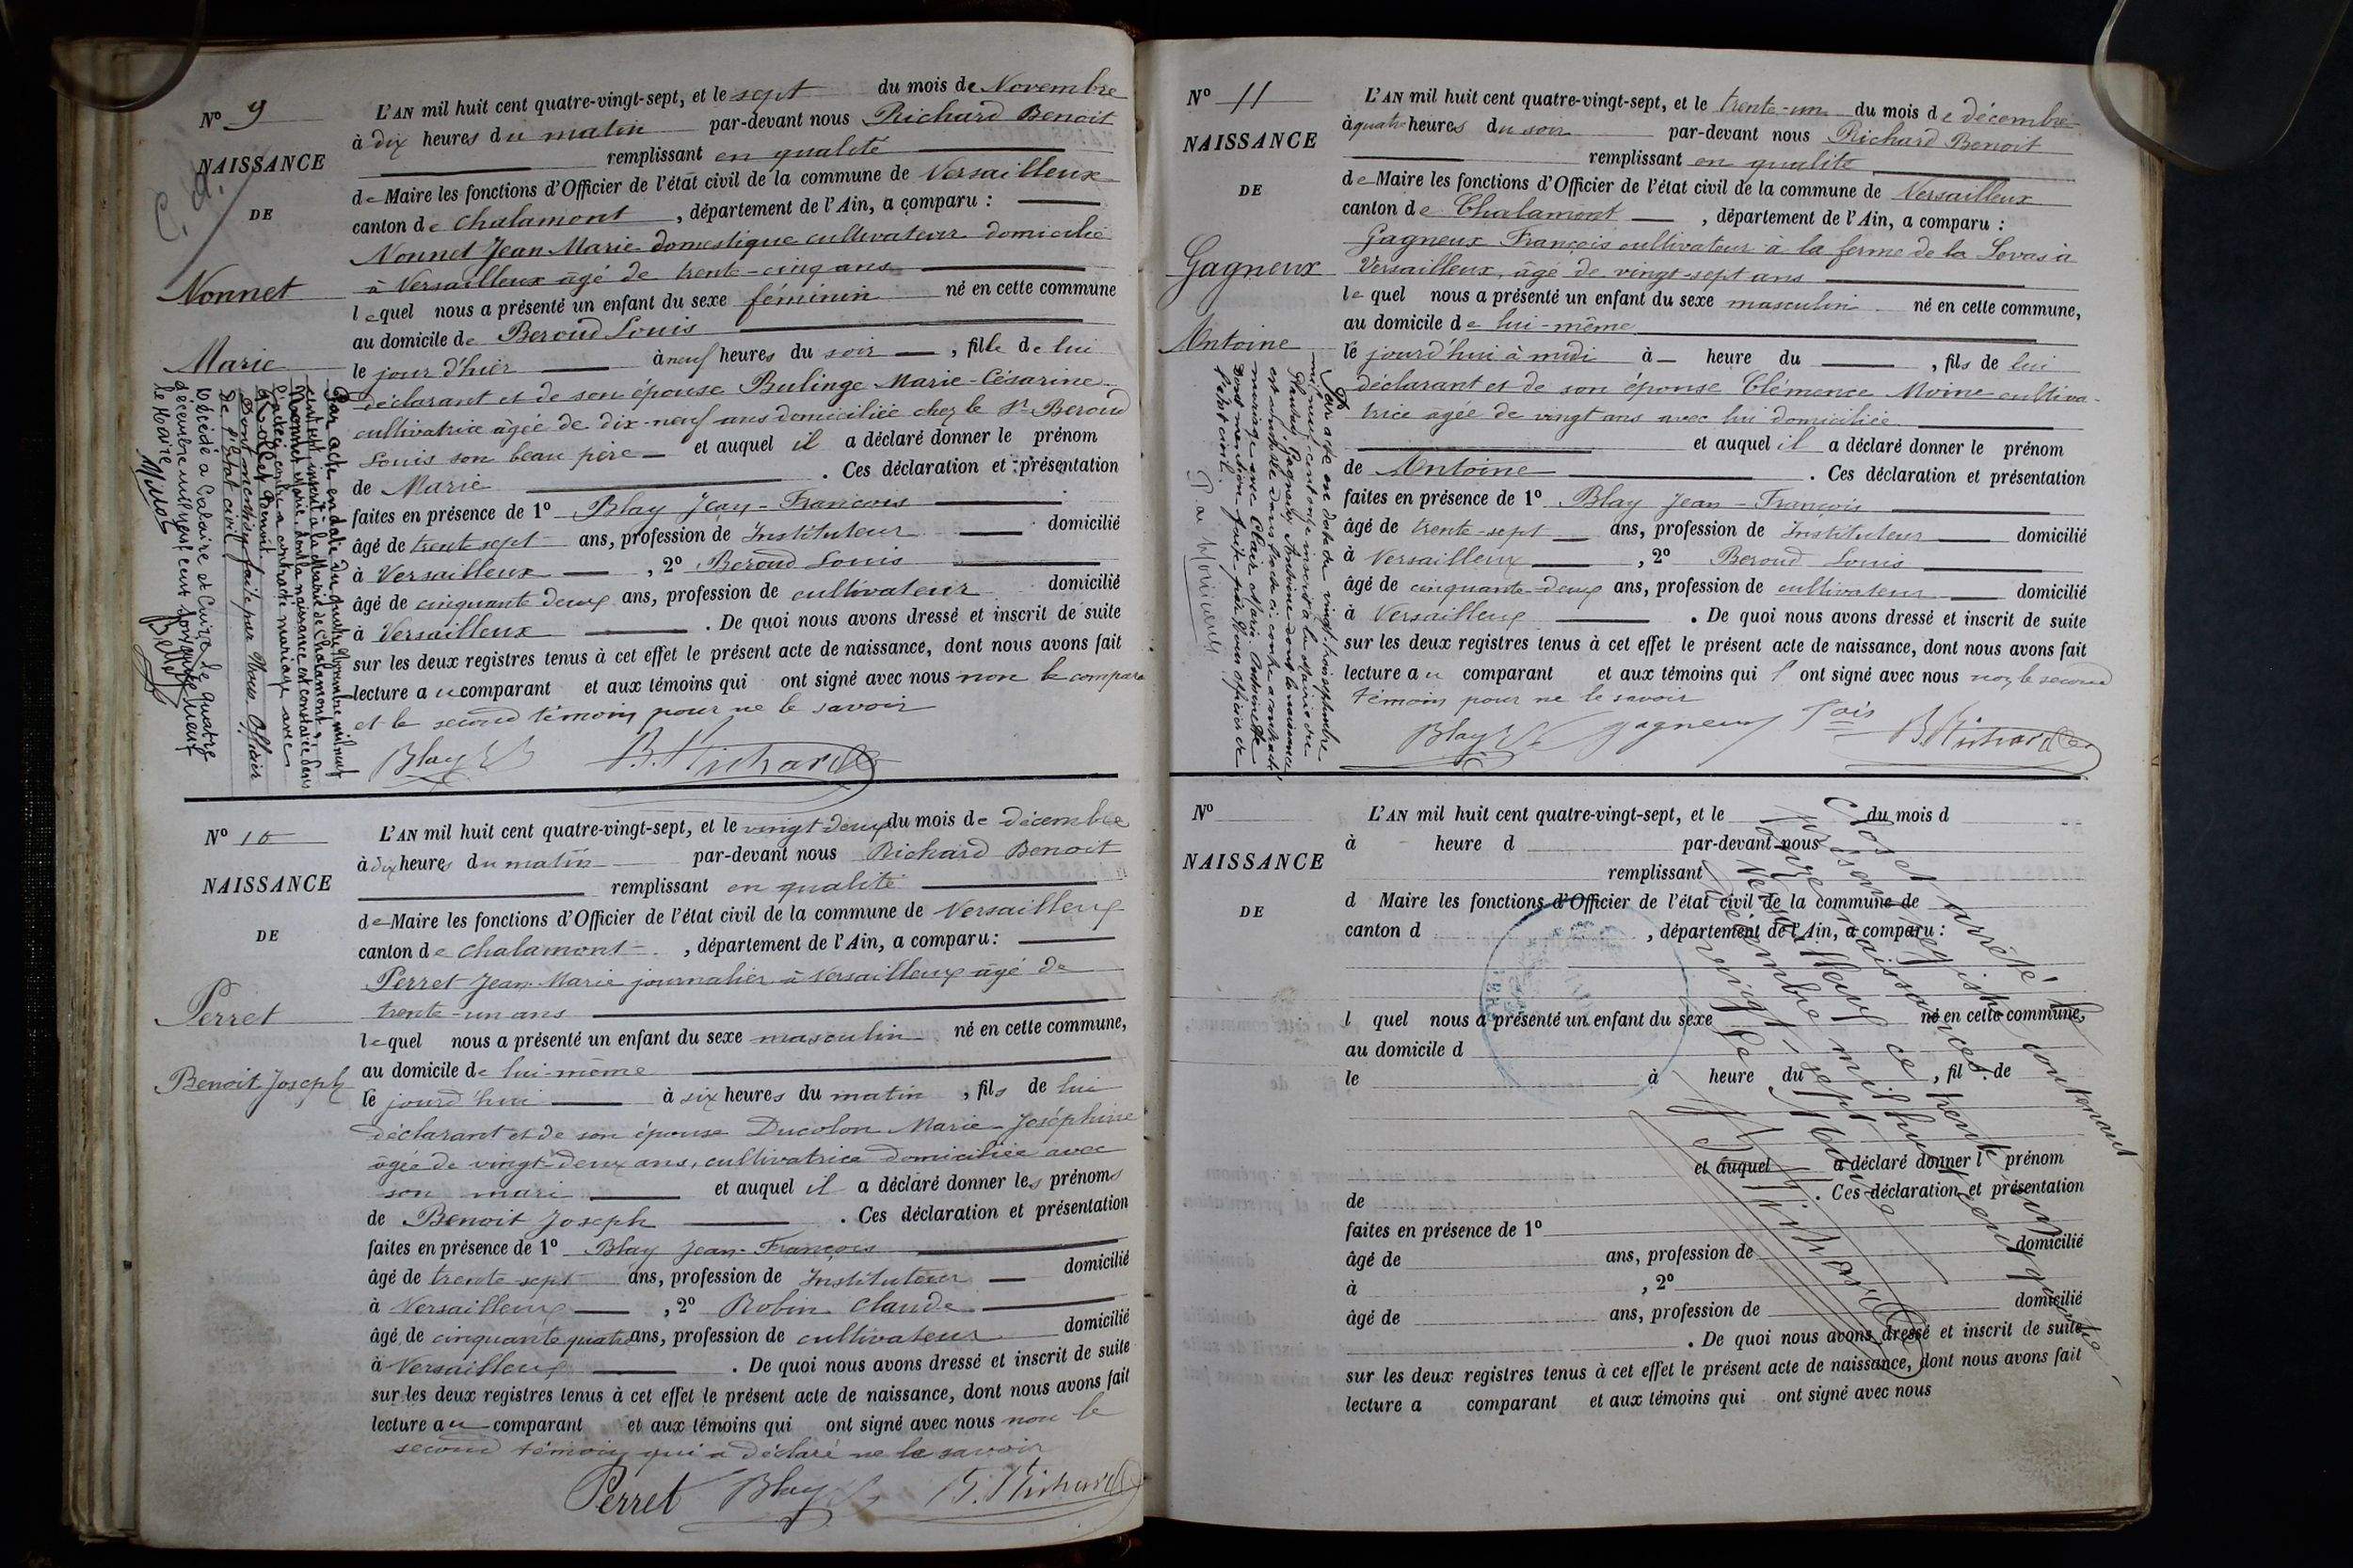 N° 9
NAISSANCE
DE
Nonnet
Marie
L'AN mil huit cent quatre-vingt-sept, et le sept du mois de Novembre
à dix heures du matin par-devant nous Richard Benoit
remplissant en qualité
de Maire les fonctions d'Officier de l'état civil de la commune de Versailleux
canton de Chalamont, département de l'Ain, a comparu :
Nonnet Jean Marie domestique cultivateur domicilié
à Versailleux âgé de trente-cinq ans
lequel nous a présenté un enfant du sexe féminin né en cette commune
au domicile de Beroud Louis
le jour d'hier à neuf heures du soir, fille de lui
déclarant et de son épouse Bulinge Marie-Césarine
cultivatrice âgée de dix-neuf ans domiciliée chez le Sr Beroud
Louis son beau père et auquel il a déclaré donner le prénom
de Marie . Ces déclaration et présentation
faites en présence de 1° Blay Jean-François
âgé de trente sept ans, profession de Instituteur domicilié
à Versailleux, 2° Beroud Louis
âgé de cinquante deux ans, profession de cultivateur domicilié
à Versailleux . De quoi nous avons dressé et inscrit de suite
sur les deux registres tenus à cet effet le présent acte de naissance, dont nous avons fait
lecture au comparant et aux témoins qui ont signé avec nous non le compara
et le second témoin pour ne le savoir
Blay B. Richard
Par acte en date du quatre Novembre mil neuf
cent sept inscrit à la Mairie de Chalamont,
Nonnet Marie, dont la naissance est constatée dans
l'acte ci-contre a contracté mariage avec
Rollet Benoit
Dont mention faite par Nous Officier
de l'état civil
Décédé à Caluire et Cuire le quatre
décembre mil neuf cent soixante neuf
le Maire
N° 10
NAISSANCE
DE
Perret
Benoit Joseph
L'AN mil huit cent quatre-vingt-sept, et le vingt deux du mois de décembre
à dix heures du matin par-devant nous Richard Benoit
remplissant en qualité
de Maire les fonctions d'Officier de l'état civil de la commune de Versailleux
canton de Chalamont, département de l'Ain, a comparu :
Perret Jean-Marie journalier à Versailleux âgé de
trente-un ans
lequel nous a présenté un enfant du sexe masculin né en cette commune,
au domicile de lui-même
le jourd'hui à six heures du matin, fils de lui
déclarant et de son épouse Ducolon Marie-Joséphine
âgée de vingt-deux ans, cultivatrice domiciliée avec
son mari et auquel il a déclaré donner les prénoms
de Benoit Joseph . Ces déclaration et présentation
faites en présence de 1° Blay Jean-François
âgé de trente sept ans, profession de Instituteur domicilié
à Versailleux, 2° Robin Claude
âgé de cinquante quatre ans, profession de cultivateur domicilié
à Versailleux . De quoi nous avons dressé et inscrit de suite
sur les deux registres tenus à cet effet le présent acte de naissance, dont nous avons fait
lecture au comparant et aux témoins qui ont signé avec nous non le
second témoin qui a déclaré ne le savoir
Perret Blay B. Richard
N° 11
NAISSANCE
DE
Gagneux
Antoine
L'AN mil huit cent quatre-vingt-sept, et le trente-un du mois de décembre
à quatre heures du soir par-devant nous Richard Benoit
remplissant en qualité
de Maire les fonctions d'Officier de l'état civil de la commune de Versailleux
canton de Chalamont, département de l'Ain, a comparu :
Gagneux François cultivateur à la ferme de la Sevas à
Versailleux, âgé de vingt-sept ans
lequel nous a présenté un enfant du sexe masculin né en cette commune,
au domicile de lui-même
le jourd'hui à midi à heure du, fils de lui
déclarant et de son épouse Clémence Moine cultiva-
trice âgée de vingt ans avec lui domiciliée
et auquel il a déclaré donner le prénom
de Antoine . Ces déclaration et présentation
faites en présence de 1° Blay Jean-François
âgé de trente-sept ans, profession de Instituteur domicilié
à Versailleux, 2° Beroud Louis
âgé de cinquante-deux ans, profession de cultivateur domicilié
à Versailleux . De quoi nous avons dressé et inscrit de suite
sur les deux registres tenus à cet effet le présent acte de naissance, dont nous avons fait
lecture au comparant et aux témoins qui ont signé avec nous non le second
témoin pour ne le savoir
Blay Gagneux fois B. Richard
Par acte en date du vingt-trois septembre
mil neuf cent onze inscrit à la Mairie de
Gagneux Antoine dont la naissance
est constatée dans l'acte ci-contre a contracté
mariage avec Marie
Dont mention faite par Nous officier de
l'état civil.
N°
NAISSANCE
DE
L'AN mil huit cent quatre-vingt-sept, et le du mois d
à heure d par-devant nous
remplissant
d Maire les fonctions d'Officier de l'état civil de la commune de
canton d , département de l'Ain, a comparu :
l quel nous a présenté un enfant du sexe né en cette commune,
au domicile d
le à heure du , fil de
et auquel a déclaré donner l prénom
de . Ces déclaration et présentation
faites en présence de 1°
âgé de ans, profession de domicilié
à , 2°
âgé de ans, profession de domicilié
. De quoi nous avons dressé et inscrit de suite
sur les deux registres tenus à cet effet le présent acte de naissance, dont nous avons fait
lecture a comparant et aux témoins qui ont signé avec nous
Clos et arrêté le
présent registre contenant
onze naissances.
Versailleux ce trente un
décembre mil huit cent quatre
vingt-sept
Le Maire
B. Richard